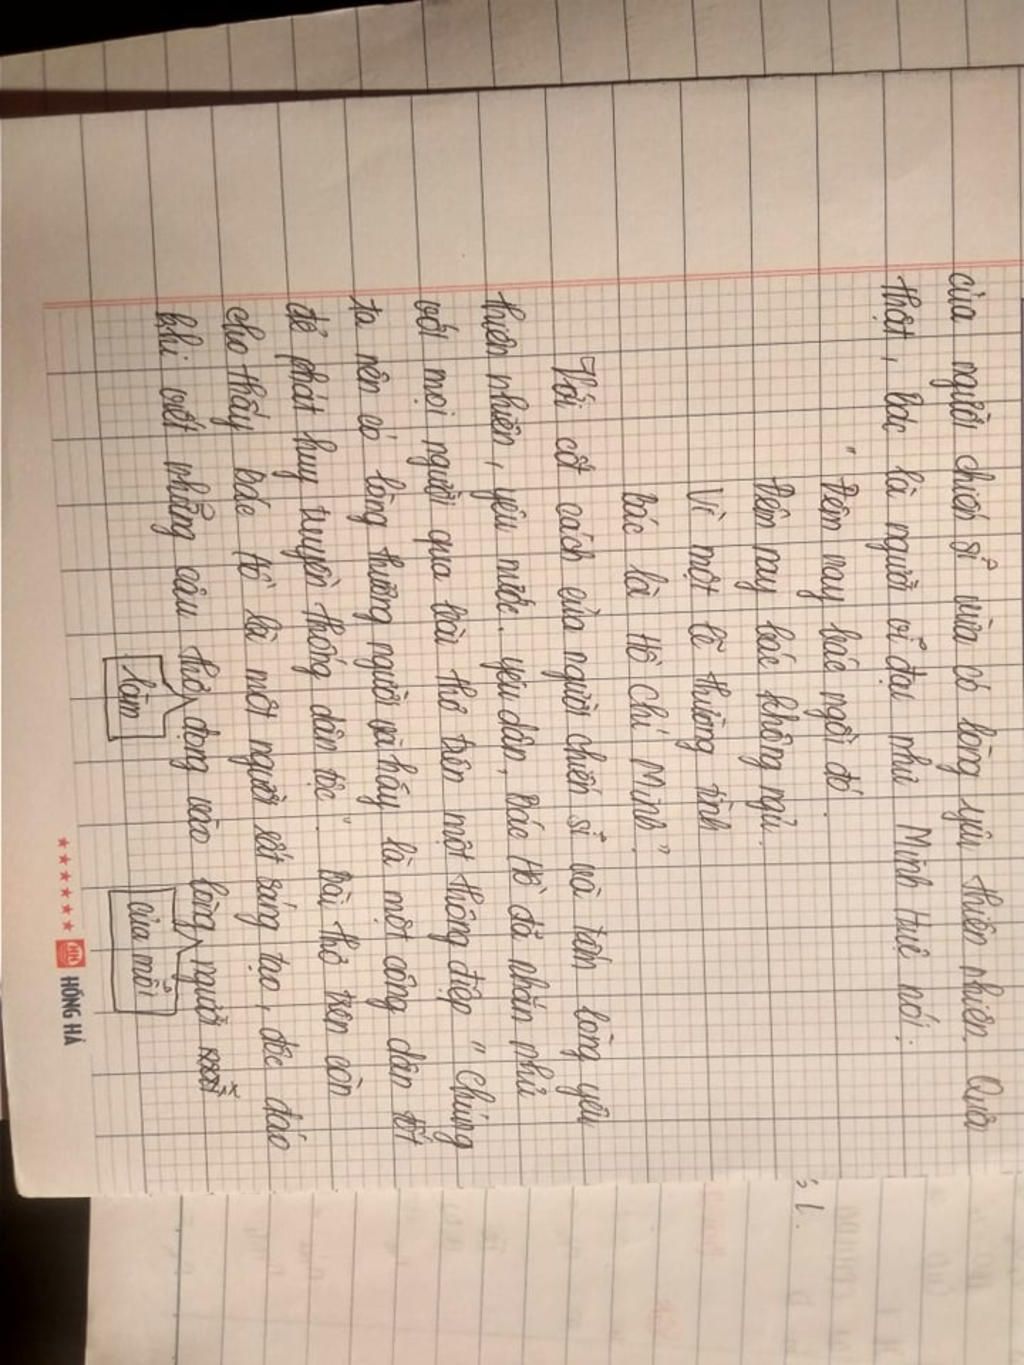 của người chiến sĩ vừa có lòng yêu thiên nhiên. Quả
thật, bác là người vĩ đại như Minh Huệ nói:
" Đêm nay bác ngồi đó.
Đêm nay bác không ngủ.
Vì một lẽ thường tình
bác là Hồ Chí Minh".
Với cốt cách của người chiến sĩ và tấm lòng yêu
thiên nhiên, yêu nước. yêu dân, Bác Hồ đã nhắn nhủ
với mọi người qua bài thơ trên một thông điệp " Chúng
ta nên có lòng thương người và hãy là một công dân tốt
để phát huy truyền thống dân tộc". Bài thơ trên còn
cho thấy Bác Hồ là một người rất sáng tạo, độc đáo
khi viết những câu thơ động vào lòng người
làm
của mỗi
HỒNG HÀ